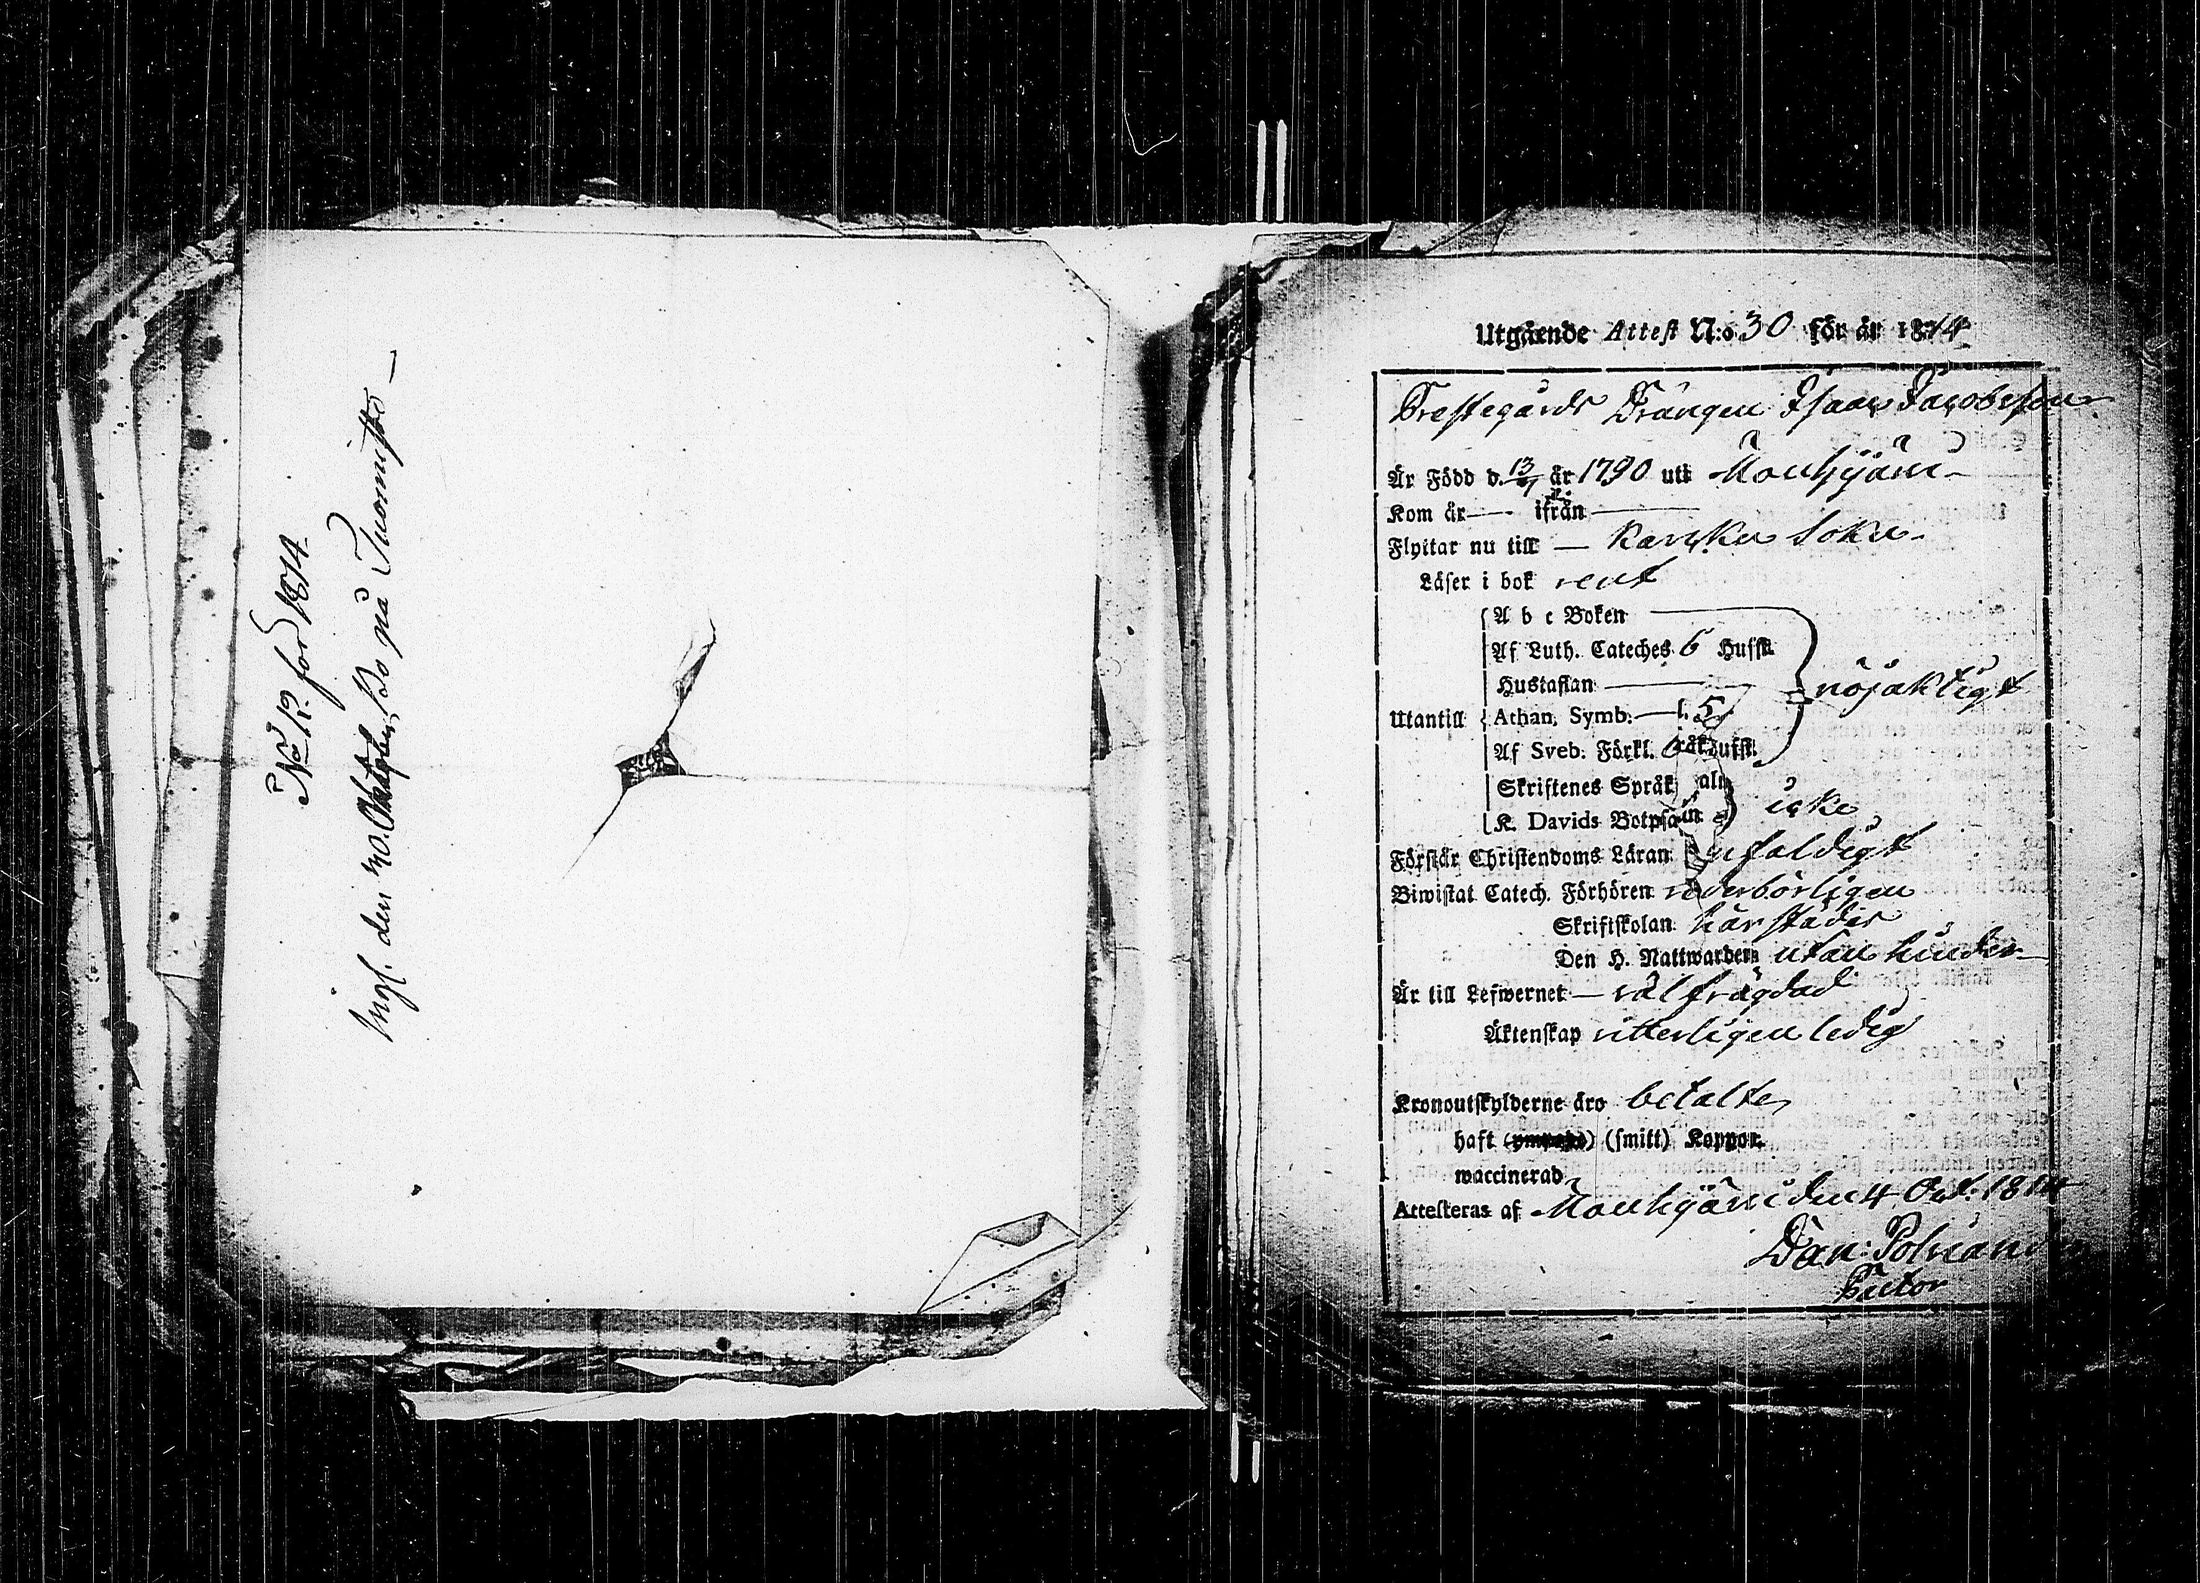 No 12. for 1814.
Ingl. den 20. Oktober, Bo på Tuomisto —
Utgående Attest N:o 30 för år 1814
Prestegårds Drängen Isaac Jacobsson
Är Född d. 13/1 år 1790 uti Mouhijärvi
Kom år — ifrån —
Flyttar nu till — Karvku Sokn.
Läser i bok rent
A b c Boken
Af Luth. Cateches. 6 Hufst.
Hustaflan — nöjaktigt
Utantill Athan. Symb. —
Af Sveb. Förkl. Hufst.
Skriftenes Språk
K. Davids Botpsa icke
Förstår Christendoms Läran enfaldigt
Biwistat Catech. Förhören vederbörligen
Skriftskolan härstädes
Den H. Nattwarden utan hinder
Är till Lefwernet — välfrägdad
Äktenskap vitterligen ledig
Kronoutskylderne äro betalte,
haft (smitt) Koppor.
waccinerad
Attesteras af Mouhijärvi den 4 Oct: 1814
Dan: Polviander